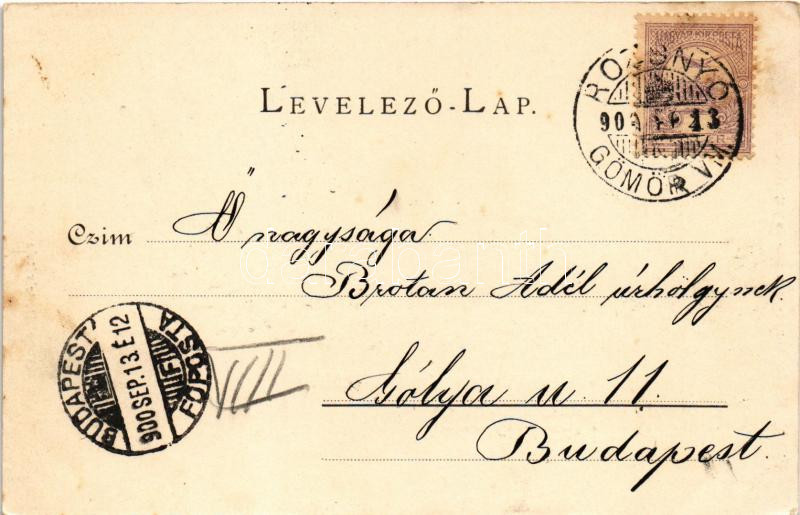 MAGYAR KIR. POSTA
ROZSNYÓ
900 SEP 13
GÖMÖR VM.
LEVELEZŐ-LAP.
Czim Ő nagysága
Brotan Adél úrhölgynek
Gólya u 11.
Budapest.
BUDAPEST
900 SEP. 13. É 12
FŐPOSTA
VIII